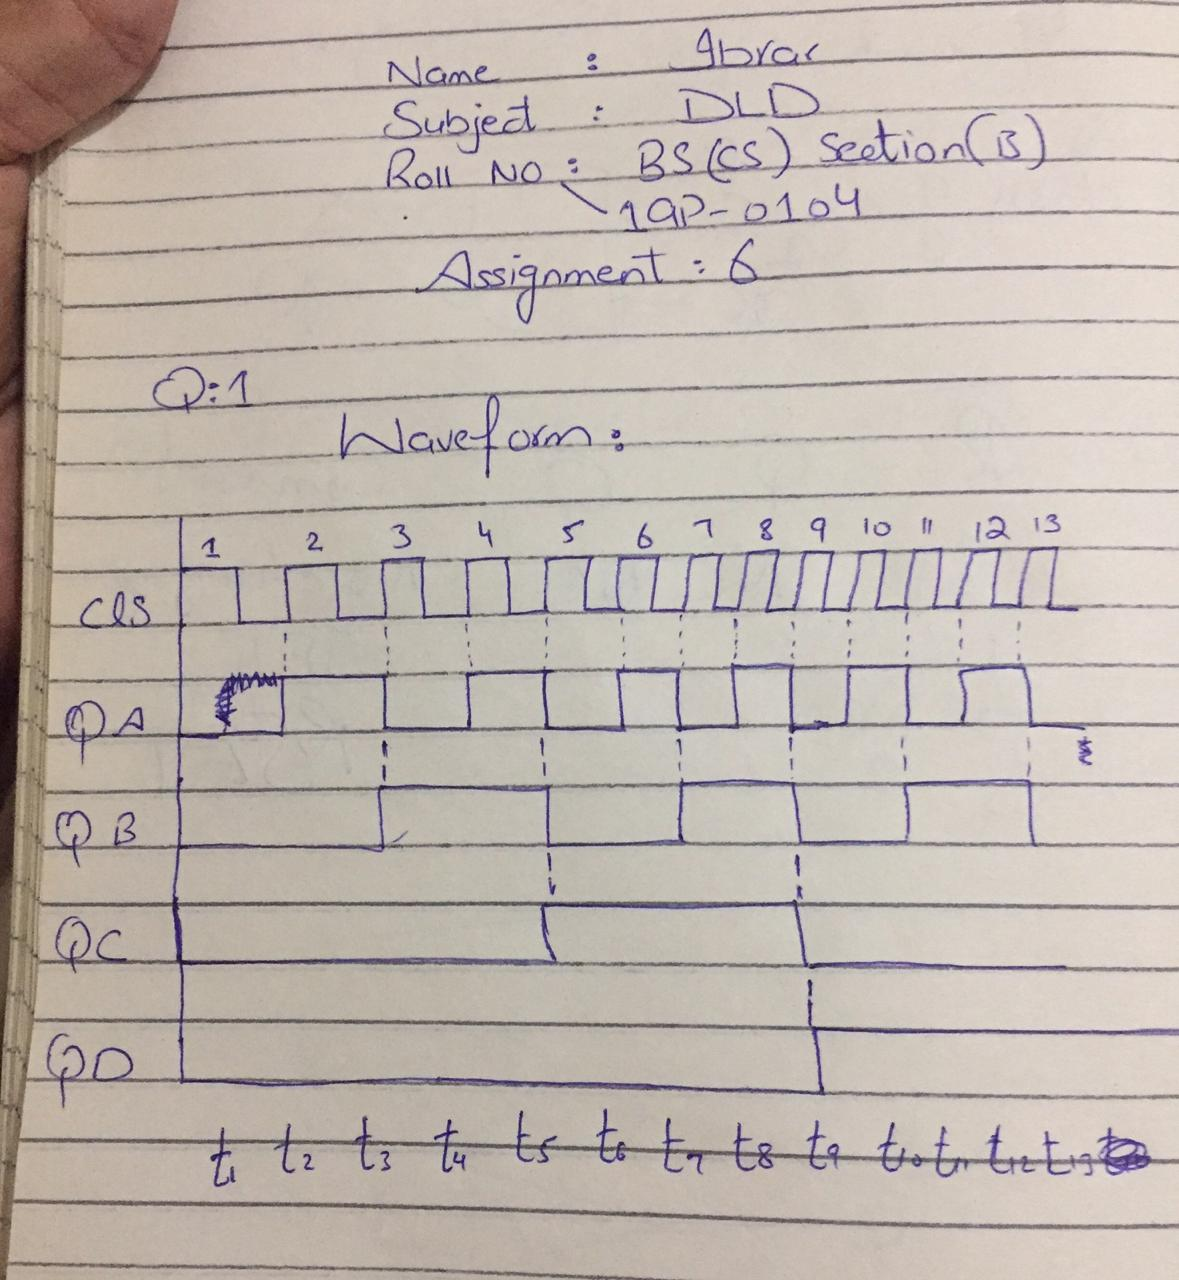 Name : Ibrar
Subject : DLD
Roll NO : BS(CS) Section(B)
19P-0104
Assignment : 6
Q:1
Waveform:
1 2 3 4 5 6 7 8 9 10 11 12 13
QA
QB
QC
QD
t1 t2 t3 t4 t5 t6 t7 t8 t9 t10 t11 t12 t13